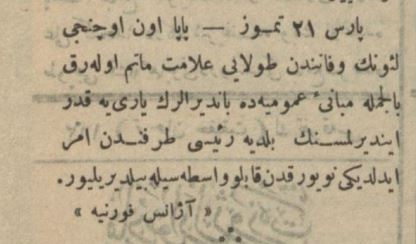 پارس ٢١ تموز — پاپا اون اوچنجی
لئونك وفاتندن طولايی علامت ماتم اوله‌رق
بالجمله مبانیٔ عموميه‌ده بانديرالرك ياری‌يه قدر
اينديرلمسنك بلديه رئيسی طرفندن امر
ايدلديكی نويورقدن قابلو واسطه‌سيله بيلديريليور.
« آژانس فورنيه »